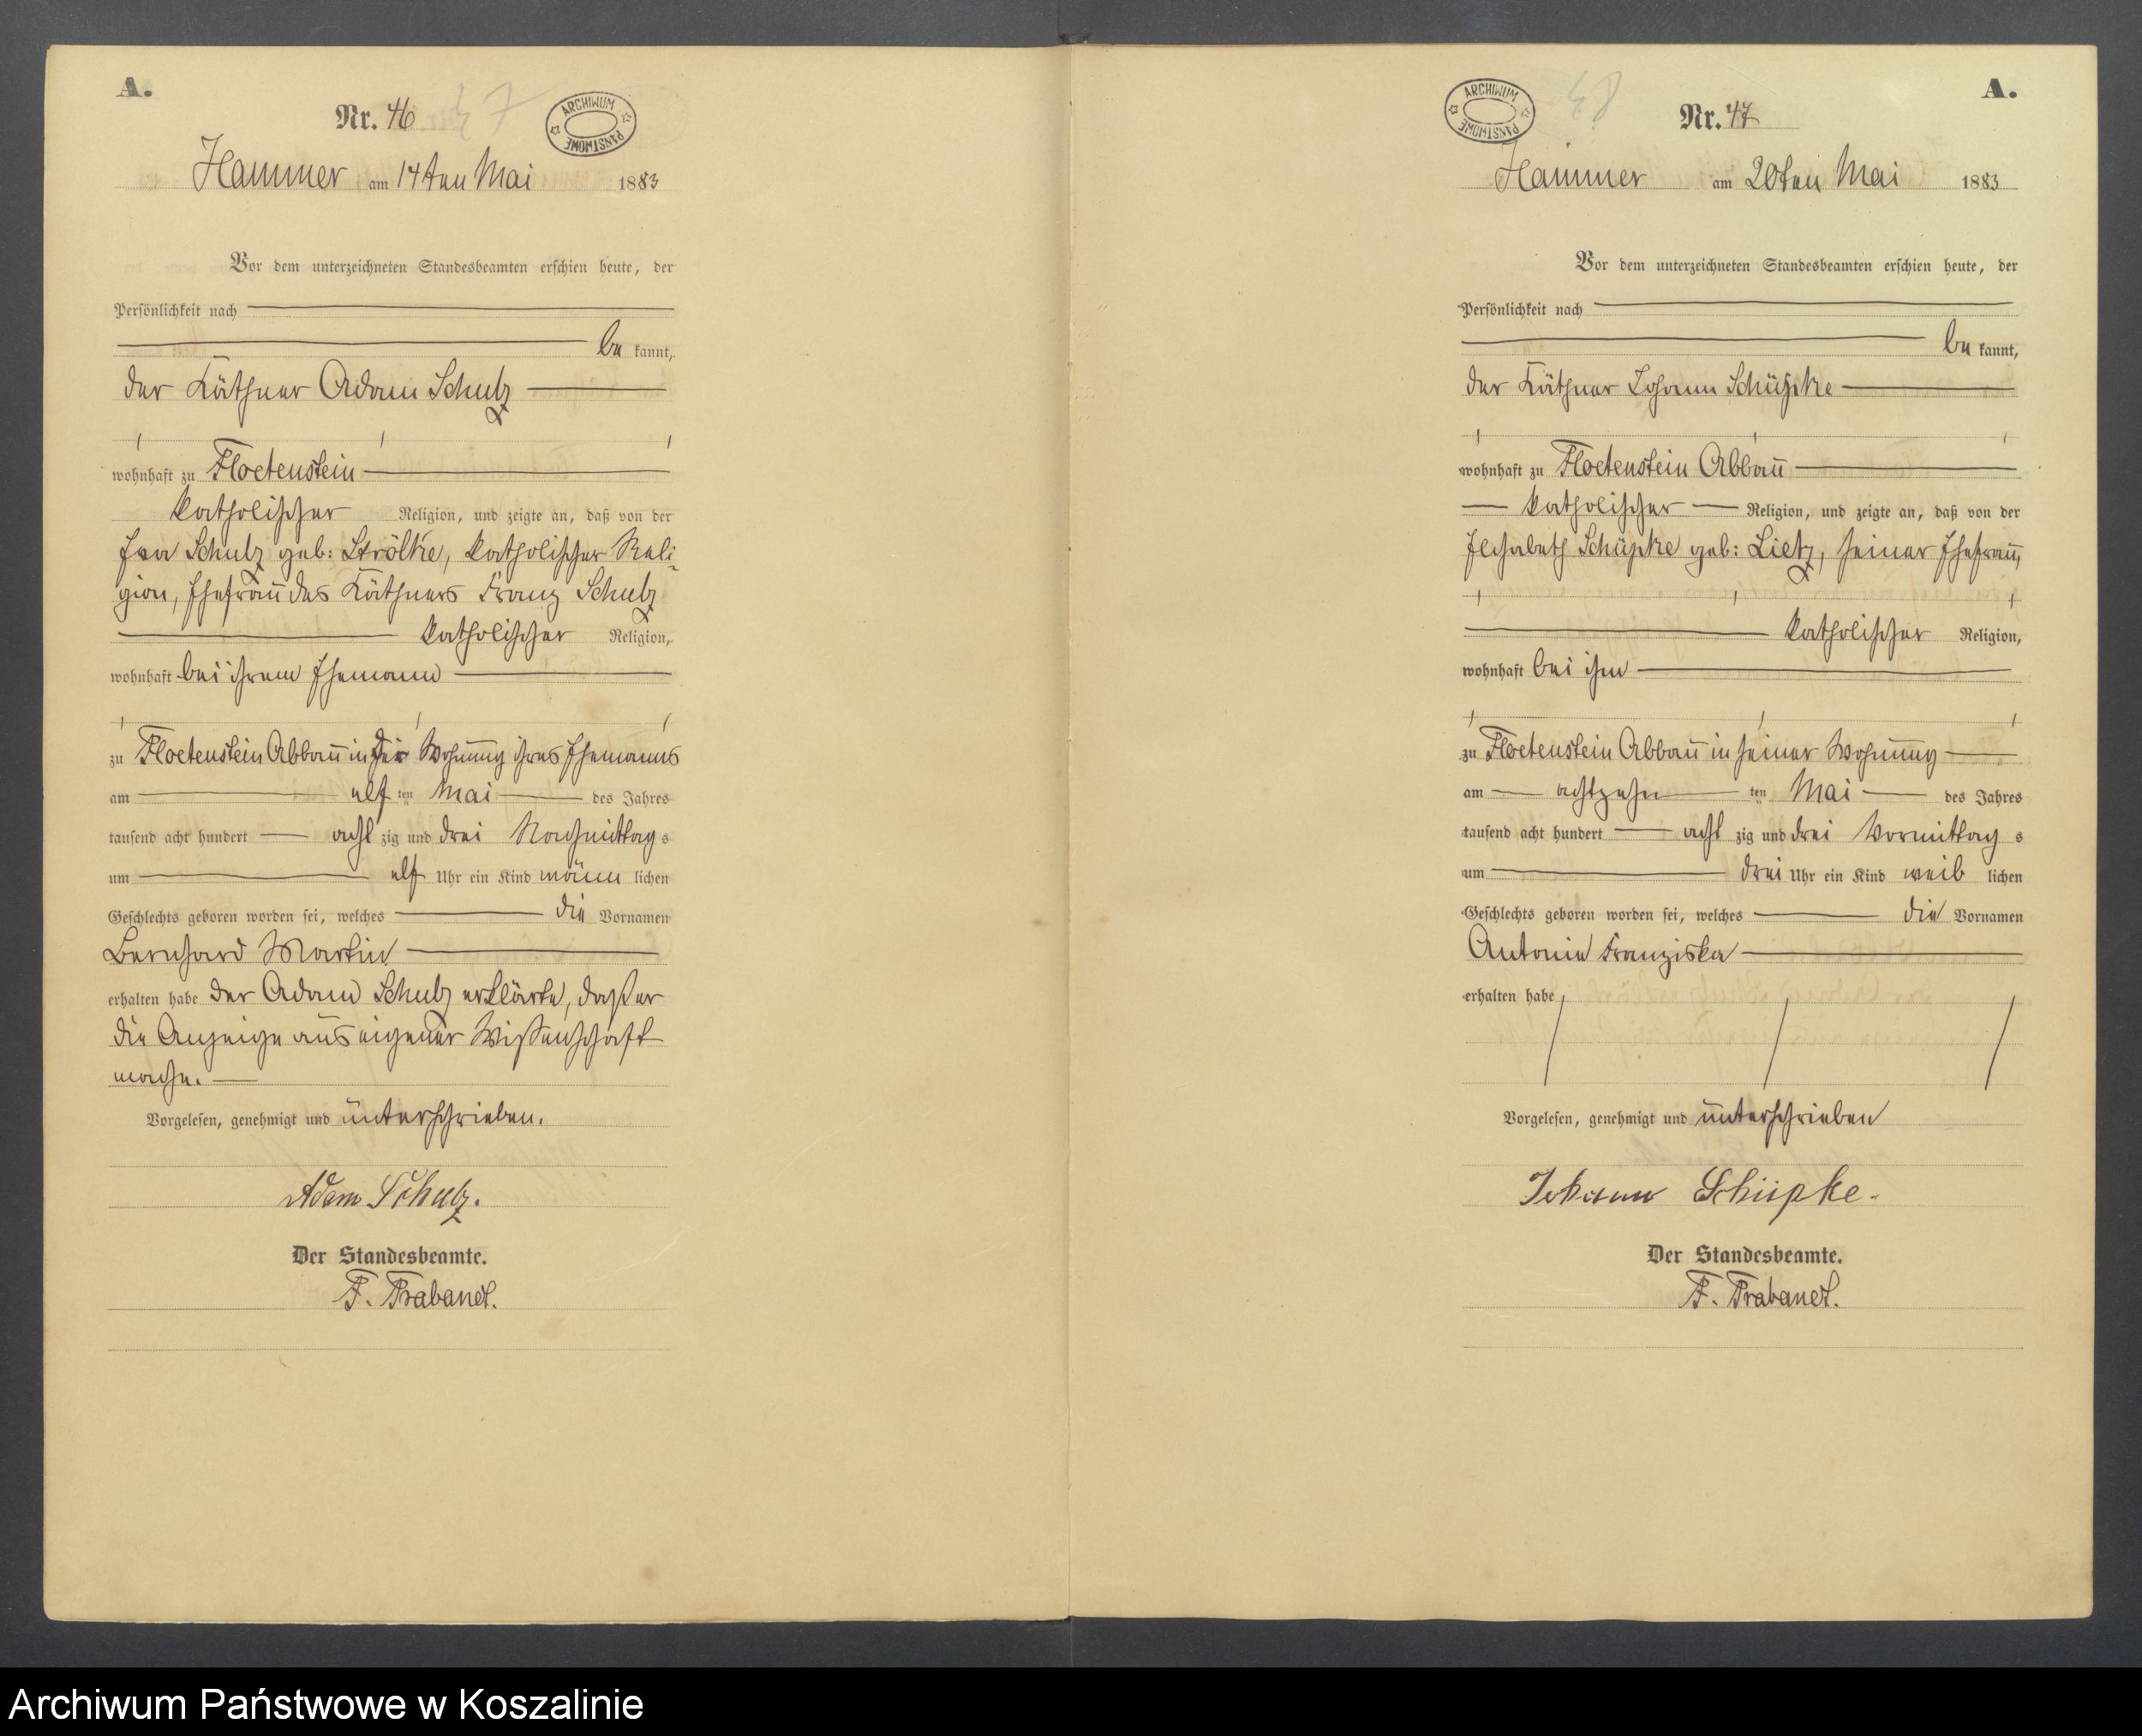 A.
Nr. 46 47
ARCHIWUM PAŃSTWOWE
Hammer am 14ten Mai 1883
Vor dem unterzeichneten Standesbeamten erschien heute, der
Persönlichkeit nach
be kannt,
der Käthner Adam Schulz
wohnhaft zu Floetenstein
katholischer Religion, und zeigte an, daß von der
Eva Schulz geb: Strölke, katholischer Reli-
gion, Ehefrau des Käthners Franz Schulz
katholischer Religion,
wohnhaft bei ihrem Ehemann
zu Floetenstein Abbau in der Wohnung ihres Ehemanns
am elf ten Mai des Jahres
tausend acht hundert acht zig und drei Nachmittag s
um elf Uhr ein Kind männ lichen
Geschlechts geboren worden sei, welches die Vornamen
Bernhard Martin
erhalten habe der Adam Schulz erklärte, daß er
die Anzeige aus eigener Wissenschaft
mache.
Vorgelesen, genehmigt und unterschrieben.
Adam Schulz.
Der Standesbeamte.
F. Trabandt.
A.
ARCHIWUM PAŃSTWOWE
48
Nr. 47
Hammer am 20ten Mai 1883
Vor dem unterzeichneten Standesbeamten erschien heute, der
Persönlichkeit nach
be kannt,
der Käthner Johann Schüpke
wohnhaft zu Floetenstein Abbau
katholischer Religion, und zeigte an, daß von der
Elisabeth Schüpke geb: Lietz, seiner Ehefrau,
katholischer Religion,
wohnhaft bei ihm
zu Floetenstein Abbau in seiner Wohnung
am achtzehn ten Mai des Jahres
tausend acht hundert acht zig und drei Vormittag s
um drei Uhr ein Kind weib lichen
Geschlechts geboren worden sei, welches die Vornamen
Antonie Franziska
erhalten habe
Vorgelesen, genehmigt und unterschrieben
Johann Schüpke.
Der Standesbeamte.
F. Trabandt.
Archiwum Państwowe w Koszalinie